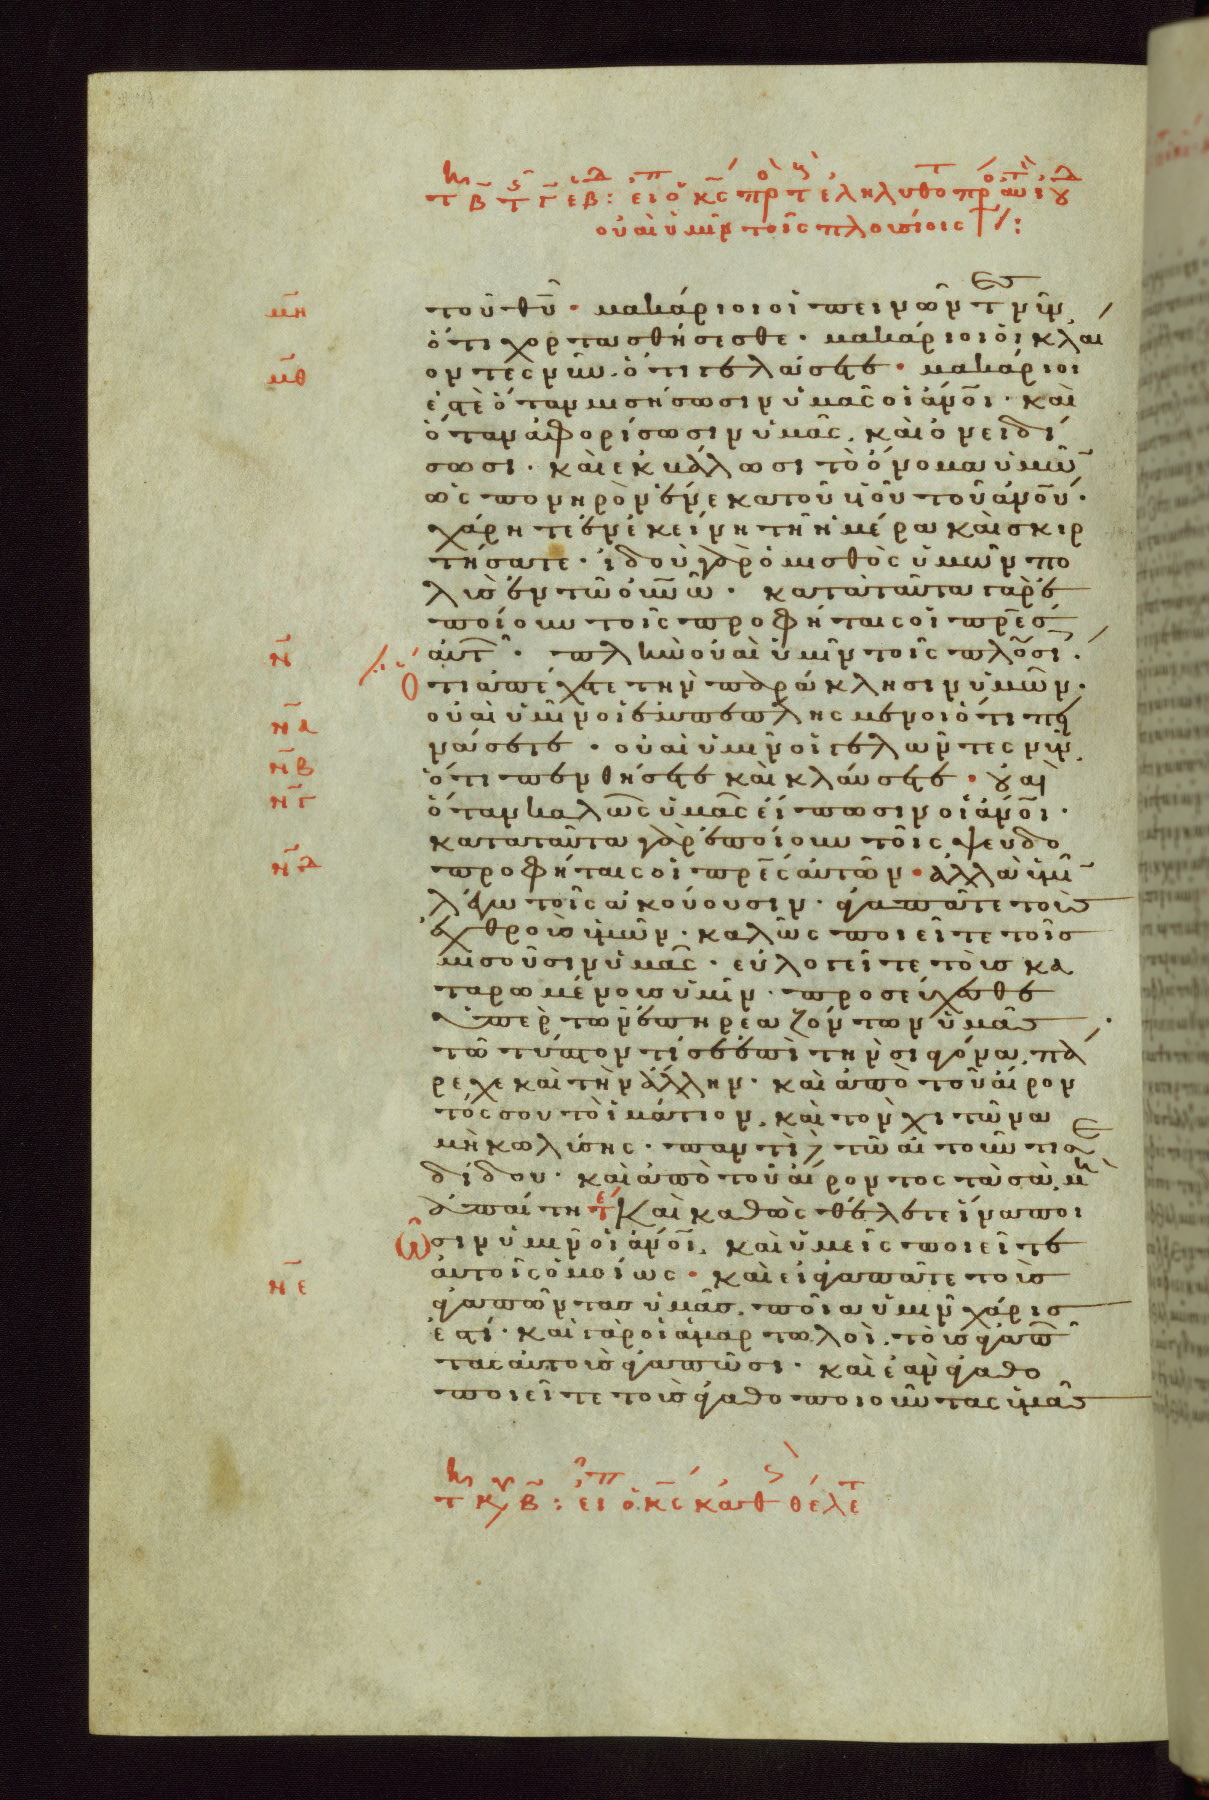 οὐαὶ ὑμῖν τοῖς πλουσίοις
μη
τοῦ θῦ · μακάριοι οἱ πεινῶντ νῦν,
ὅτι χορτασθήσεσθε · μακάριοι οἱ κλαί
μθ
οντες νῦν. ὅτι γελάσετε · μακάριοι
ἐστὲ ὅταν μισήσωσιν ὑμᾶς οἱ ἄνοι · καὶ
ὅταν ἀφορίσωσιν ὑμᾶς. καὶ ὀνειδί
σωσι · καὶ ἐκβάλωσι τὸ ὄνομα ὑμῶν
ὡς πονηρὸν ἕνεκα τοῦ υἱοῦ τοῦ ἀνου ·
χάρητε ἐν ἐκείνη τῆ ἡμέρα καὶ σκιρ
τήσατε · ἰδοὺ γὰρ ὁ μισθὸς ὑμῶν πο
λὺς ἐν τῶ οὐνῶ · κατὰ ταῦτα γὰρ ἐ
ποίουν τοῖς προφήταις οἱ πρες
ν
αὐτ · πλὴν οὐαὶ ὑμῖν τοῖς πλοσι.
ὅτι ἀπέχετε τὴν παράκλησιν ὑμῶν ·
να
οὐαὶ ὑμῖν οἱ ἐμπεπλησμένοι ὅτι πει
νάσετε · οὐαὶ ὑμῖν οἱ γελῶντες νῦν.
νβ
ὅτι πενθήσετε καὶ κλαύσετε · οὐαὶ
νγ
ὅταν καλῶς ὑμᾶς εἴπωσιν οἱ ἄνοι ·
κατα ταῦτα γὰρ ἐποίουν τοῖς ψευδο
νδ
προφήταις οἱ πρες αὐτῶν · ἀλλὰ ὑμῖ
λέγω τοῖς ἀκούουσιν · ἀγαπᾶτε τοὺς
ἐχθροὺς ὑμῶν · καλῶς ποιεῖτε τοῖς
μισοῦσιν ὑμᾶς · εὐλογεῖτε τοὺς κα
ταρωμένους ὑμῖν · προσεύχεσθε
ὑπὲρ τῶν ἐπηρεαζόντων ὑμᾶς
τῶ τύπτοντί σε ἐπὶ τὴν σιαγόνα, πά
ρεχε καὶ τὴν ἄλλην · καὶ ἀπὸ τοῦ αἴρον
τός σου τὸ ἱμάτιον, καὶ τὸν χιτῶνα
μὴ κωλύσης · παντὶ τῶ αἰτοῦντι σε
δίδου · καὶ ἀπὸ τοῦ αἴροντος τὰ σὰ, μὴ
ἀπαίτει Καὶ καθὼς θέλετε ἵνα ποι
ῶσιν ὑμῖν οἱ ἄνοι, καὶ ὑμεῖς ποιεῖτε
νε
αὐτοῖς ὁμοίως · καὶ εἰ ἀγαπᾶτε τοὺς
ἀγαπῶντας ὑμᾶς, ποῖα ὑμῖν χάρις
ἐστί · καὶ γὰρ οἱ ἁμαρτωλοὶ, τοὺς ἀγαπῶ
τας αὐτοὺς ἀγαπῶσι · καὶ ἐὰν ἀγαθο
ποιεῖτε τοὺς ἀγαθοποιοῦντας ὑμᾶς